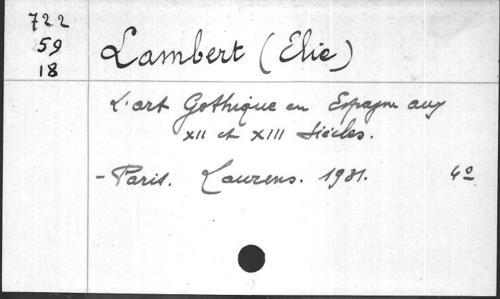 722
59
18
Lambert (Elie)
L'art Gothique en Espagne aux
XII et XIII Siècles.
- Paris. Laurens. 1931.
4º